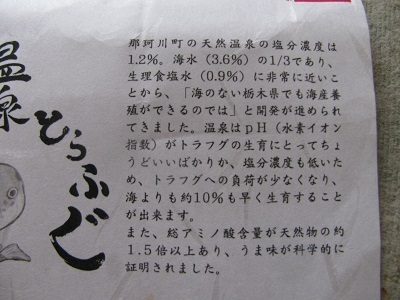 温泉とらふぐ
那珂川町の天然温泉の塩分濃度は
1.2%。海水（3.6%）の1/3であり、
生理食塩水（0.9%）に非常に近いこ
とから、「海のない栃木県でも海産養
殖ができるのでは」と開発が進められ
てきました。温泉はｐＨ（水素イオン
指数）がトラフグの生育にとってちょ
うどいいばかりか、塩分濃度も低いた
め、トラフグへの負荷が少なくなり、
海よりも約10%も早く生育すること
が出来ます。
また、総アミノ酸含量が天然物の約
1.5倍以上あり、うま味が科学的に
証明されました。